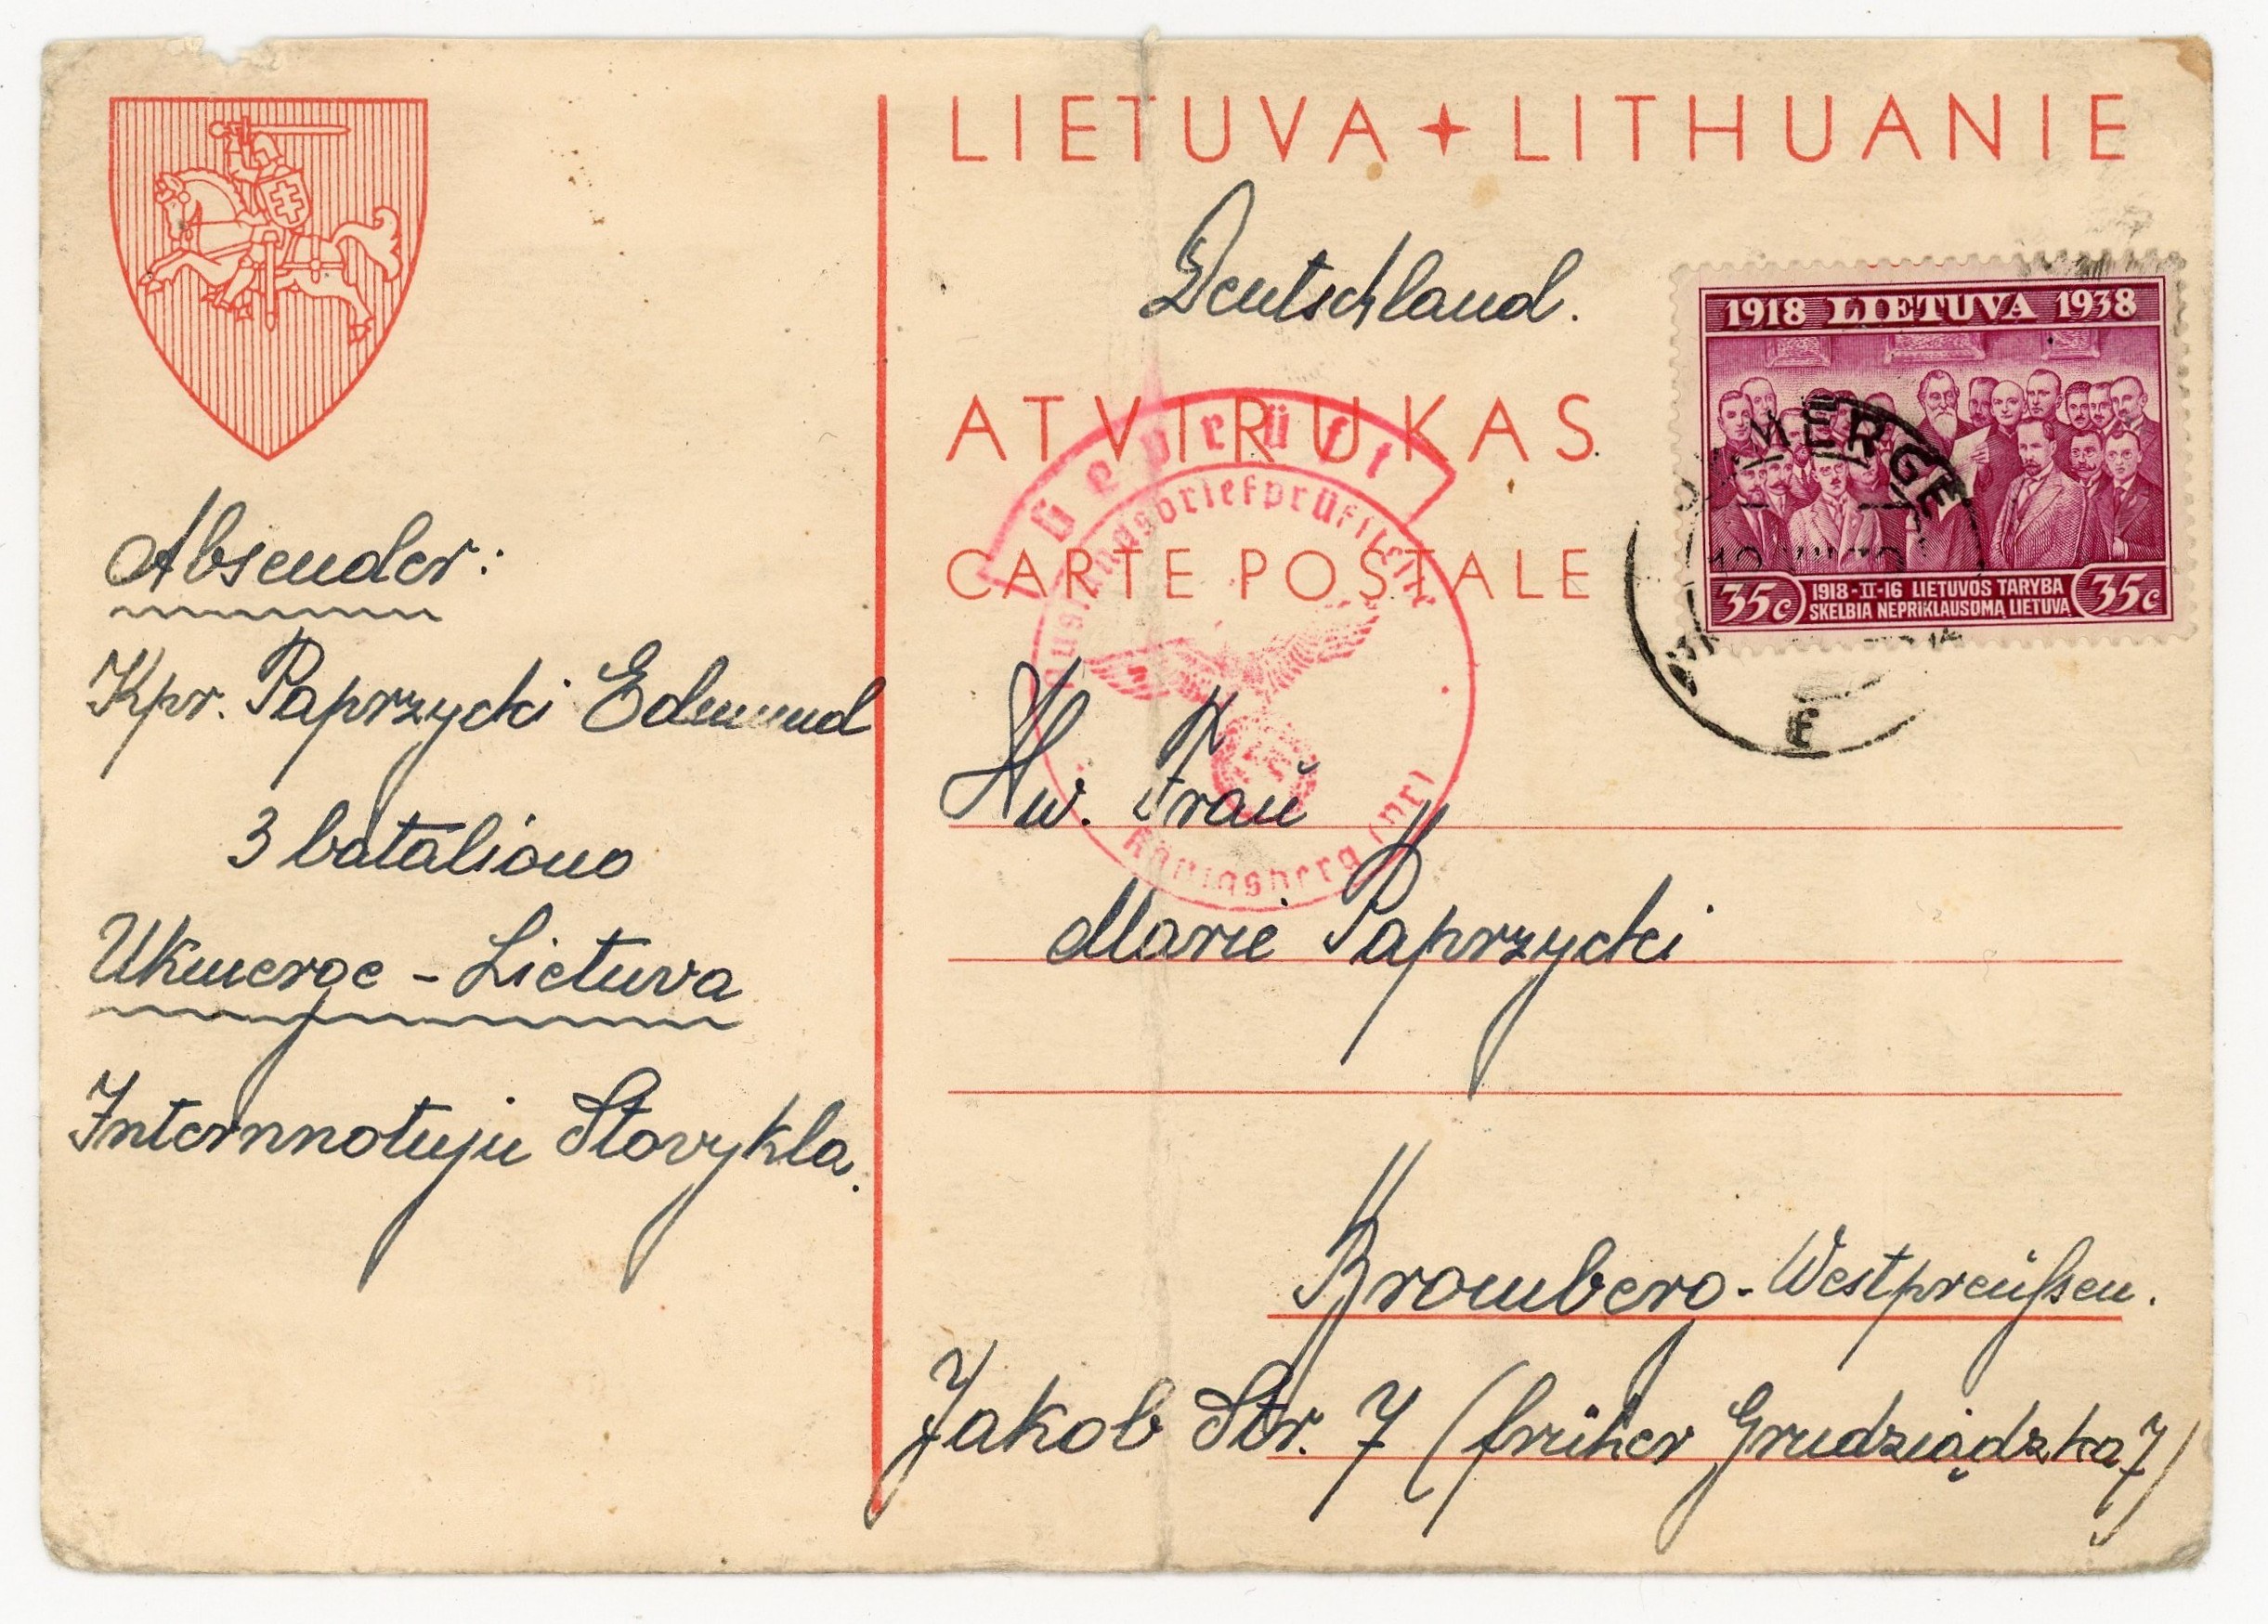 LIETUVA LITHUANIE
Deutschland.
1918 LIETUVA 1938
35c 1918-II-16 LIETUVOS TARYBA 35c
SKELBIA NEPRIKLAUSOMĄ LIETUVĄ
ATVIRUKAS
CARTE POSTALE
Geprüft
Auslandsbriefprüfstelle
Königsberg (Pr)
Absender:
Kpr. Paprzycki Edmund
3 bataliono
Ukmerge - Lietuva
Internnotuju Stovykla.
Hw. Frau
Marie Paprzycki
Bromberg - Westpreußen.
Jakob Str. 7 (früher Grudziądzka 7)